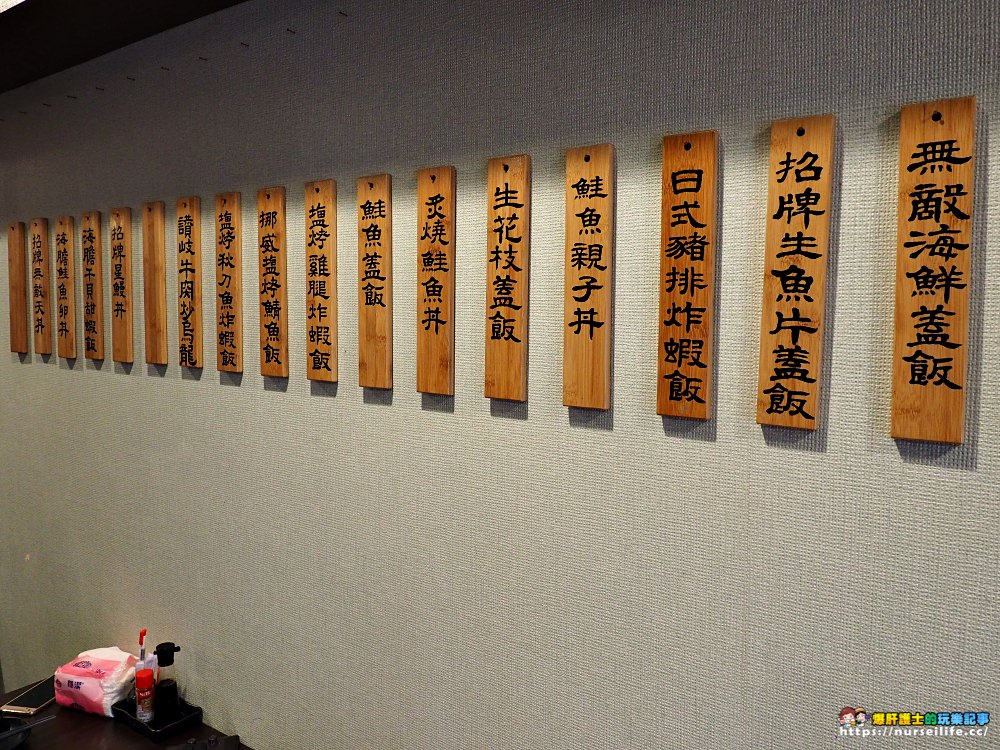 無敵海鮮蓋飯
招牌生魚片蓋飯
日式豬排炸蝦飯
鮭魚親子丼
生花枝蓋飯
炙燒鮭魚丼
鮭魚蓋飯
塩烤雞腿炸蝦飯
挪威塩烤鯖魚飯
塩烤秋刀魚炸蝦飯
讚岐牛肉炒烏龍
招牌星鰻丼
海膽干貝甜蝦飯
海膽鮭魚卵丼
招牌無敵天丼
爆肝護士的玩樂記事
https://nurseilife.cc/